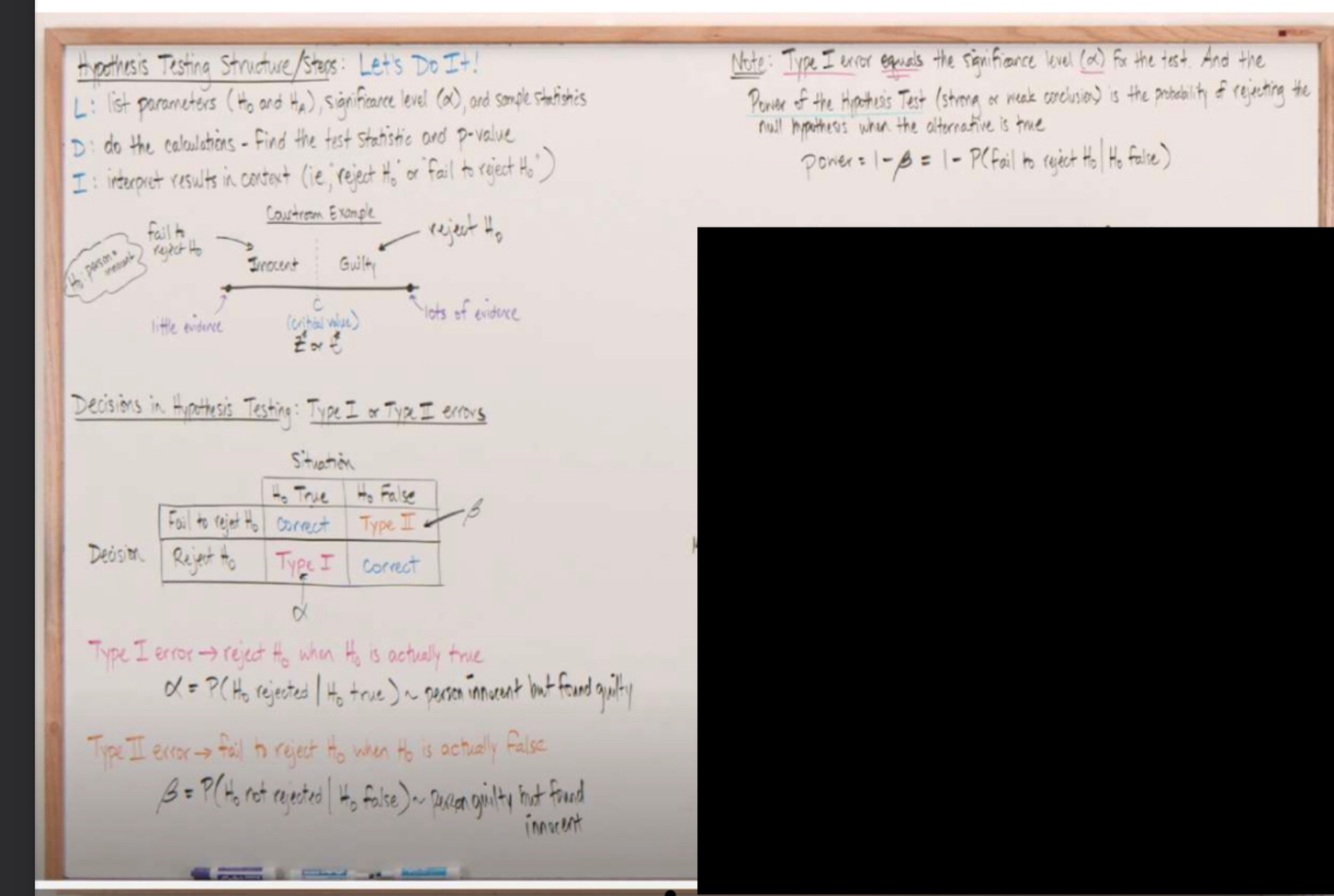 Hypothesis Testing Structure/Steps: Let's Do It!
L: list parameters (H₀ and Hₐ), significance level (α), and sample statistics
D: do the calculations - find the test statistic and p-value
I: interpret results in context (ie, "reject H₀" or "fail to reject H₀")
Courtroom Example
fail to
reject H₀
reject H₀
H₀: person
innocent
Innocent
Guilty
little evidence
C
(critical value)
z* or t*
lots of evidence
Decisions in Hypothesis Testing: Type I or Type II errors
Situation
H₀ True
H₀ False
Fail to reject H₀
Correct
Type II
β
Decision
Reject H₀
Type I
Correct
α
Type I error → reject H₀ when H₀ is actually true
α = P(H₀ rejected | H₀ true) ~ person innocent but found guilty
Type II error → fail to reject H₀ when H₀ is actually false
β = P(H₀ not rejected | H₀ false) ~ person guilty but found
innocent
Note: Type I error equals the significance level (α) for the test. And the
Power of the Hypothesis Test (strong or weak conclusion) is the probability of rejecting the
null hypothesis when the alternative is true
power = 1 - β = 1 - P(fail to reject H₀ | H₀ false)